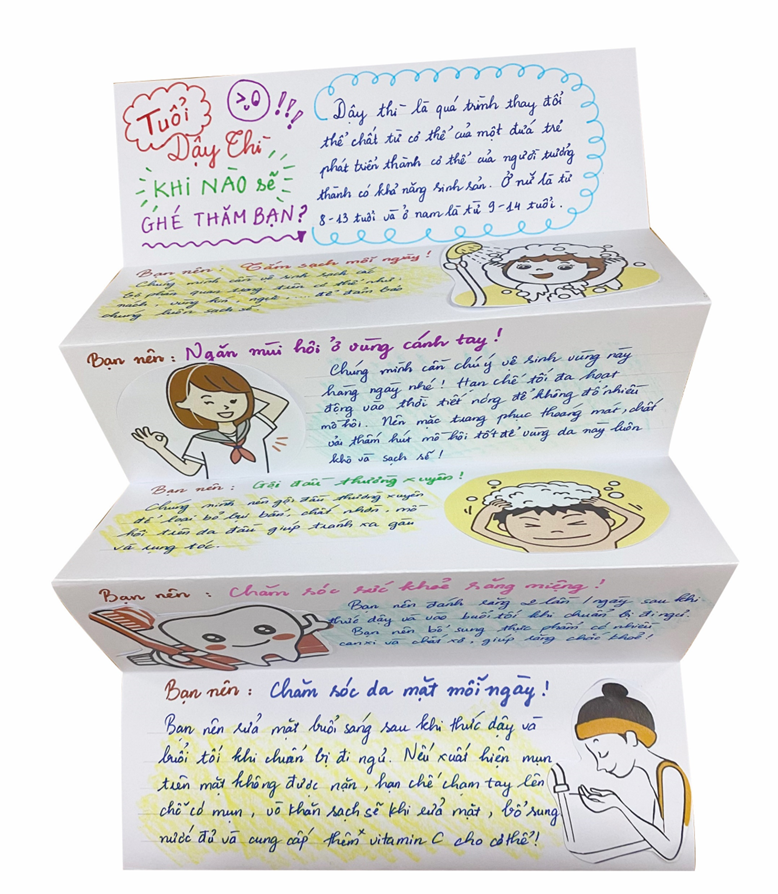 Tuổi
Dậy Thì
KHI NÀO sẽ
GHÉ THĂM BẠN?
!!!
Dậy thì là quá trình thay đổi
thể chất từ cơ thể của một đứa trẻ
phát triển thành cơ thể của người trưởng
thành có khả năng sinh sản. Ở nữ là từ
8-13 tuổi và ở nam là từ 9-14 tuổi.
Bạn nên: Tắm sạch mỗi ngày!
Chúng mình cần vệ sinh sạch các
bộ phận quan trọng trên cơ thể như,
nách, vùng kín, ngực, .... để đảm bảo
chúng luôn sạch sẽ.
Bạn nên: Ngăn mùi hôi ở vùng cánh tay!
Chúng mình cần chú ý vệ sinh vùng này
hàng ngày nhé! Hạn chế tối đa hoạt
động vào thời tiết nóng để không đổ nhiều
mồ hôi. Nên mặc trang phục thoáng mát, chất
vải thấm hút mồ hôi tốt để vùng da này luôn
khô và sạch sẽ!
Bạn nên: Gội đầu thường xuyên!
Chúng mình nên gội đầu thường xuyên
để loại bỏ bụi bẩn, chất nhờn, mồ
hôi trên da đầu giúp tránh xa gàu
và rụng tóc.
Bạn nên: Chăm sóc sức khoẻ răng miệng!
Bạn nên đánh răng 2 lần / ngày sau khi
thức dậy và vào buổi tối khi chuẩn bị đi ngủ.
Bạn nên bổ sung thực phẩm có nhiều
canxi và chất xơ, giúp răng chắc khoẻ!
Bạn nên: Chăm sóc da mặt mỗi ngày!
Bạn nên rửa mặt buổi sáng sau khi thức dậy và
buổi tối khi chuẩn bị đi ngủ. Nếu xuất hiện mụn
trên mặt không được nặn, hạn chế chạm tay lên
chỗ có mụn, vỗ khăn sạch sẽ khi rửa mặt, bổ sung
nước đủ và cung cấp thêm vitamin C cho cơ thể!